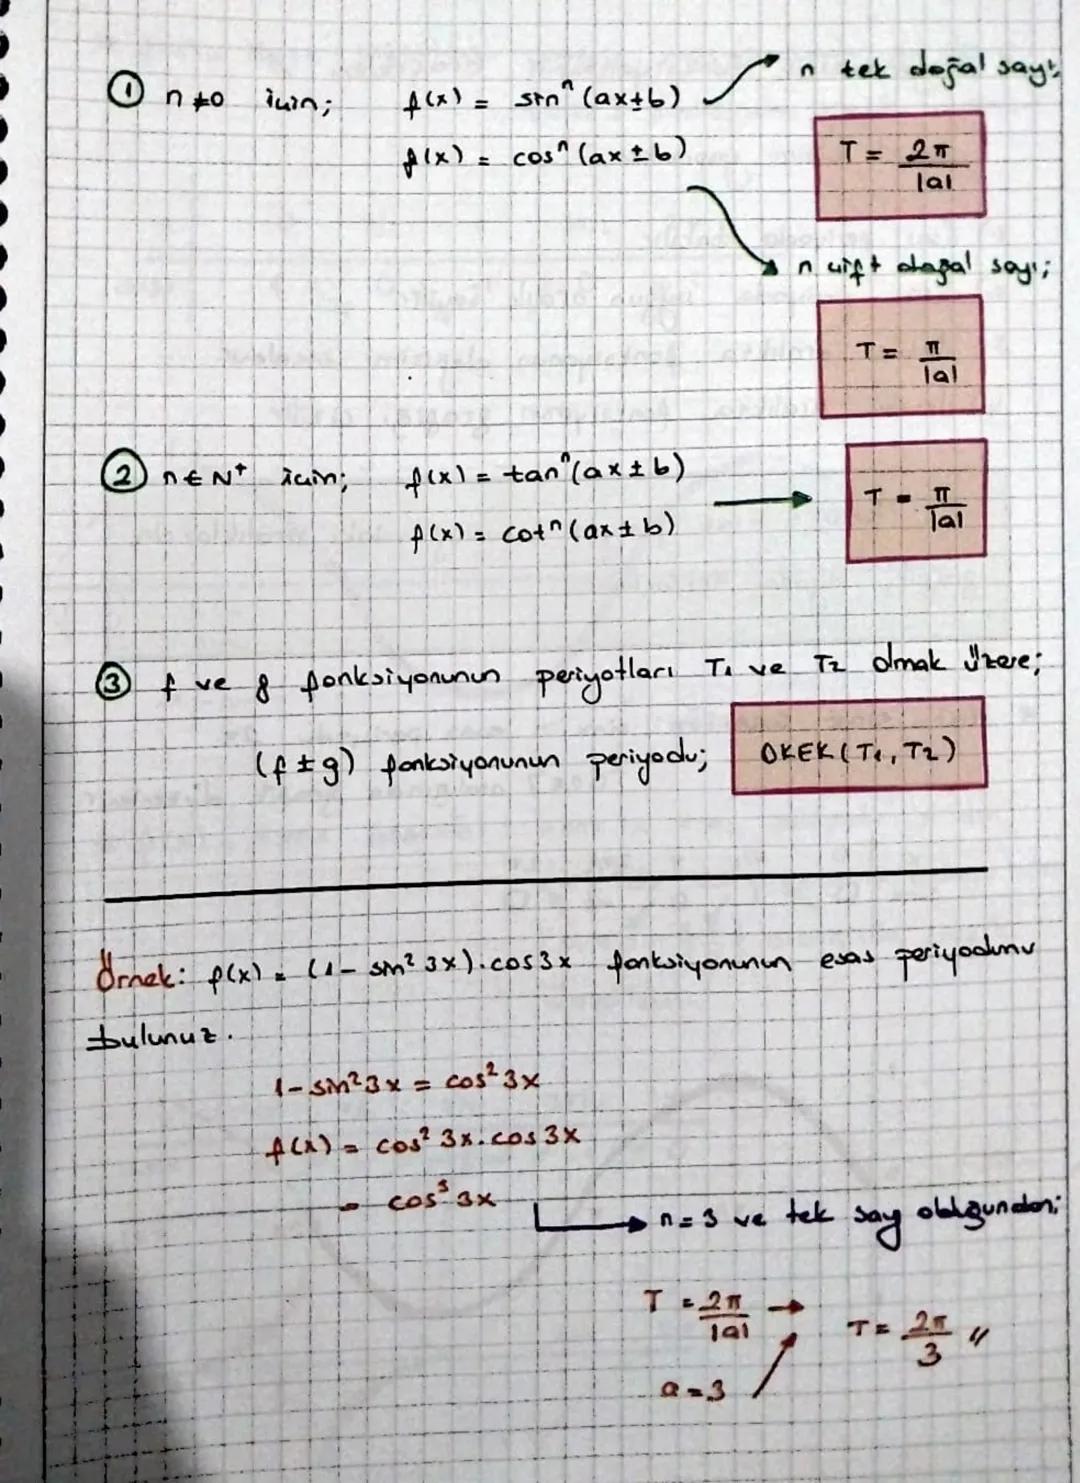 ① n≠0 için; f(x) = sinⁿ(ax±b) n tek doğal sayı;
f(x) = cosⁿ(ax±b) T = 2π/|a|
n çift doğal sayı;
T = π/|a|
② n∈N⁺ için; f(x) = tanⁿ(ax±b) T = π/|a|
f(x) = cotⁿ(ax±b)
③ f ve g fonksiyonunun periyotları T₁ ve T₂ olmak üzere;
(f±g) fonksiyonunun periyodu; OKEK(T₁, T₂)
Örnek: f(x) = (1-sin²3x).cos3x fonksiyonunun esas periyodunu
bulunuz.
1-sin²3x = cos²3x
f(x) = cos²3x.cos3x
= cos³3x
n=3 ve tek sayı olduğundan;
T = 2π/|a| T = 2π/3 //
a=3